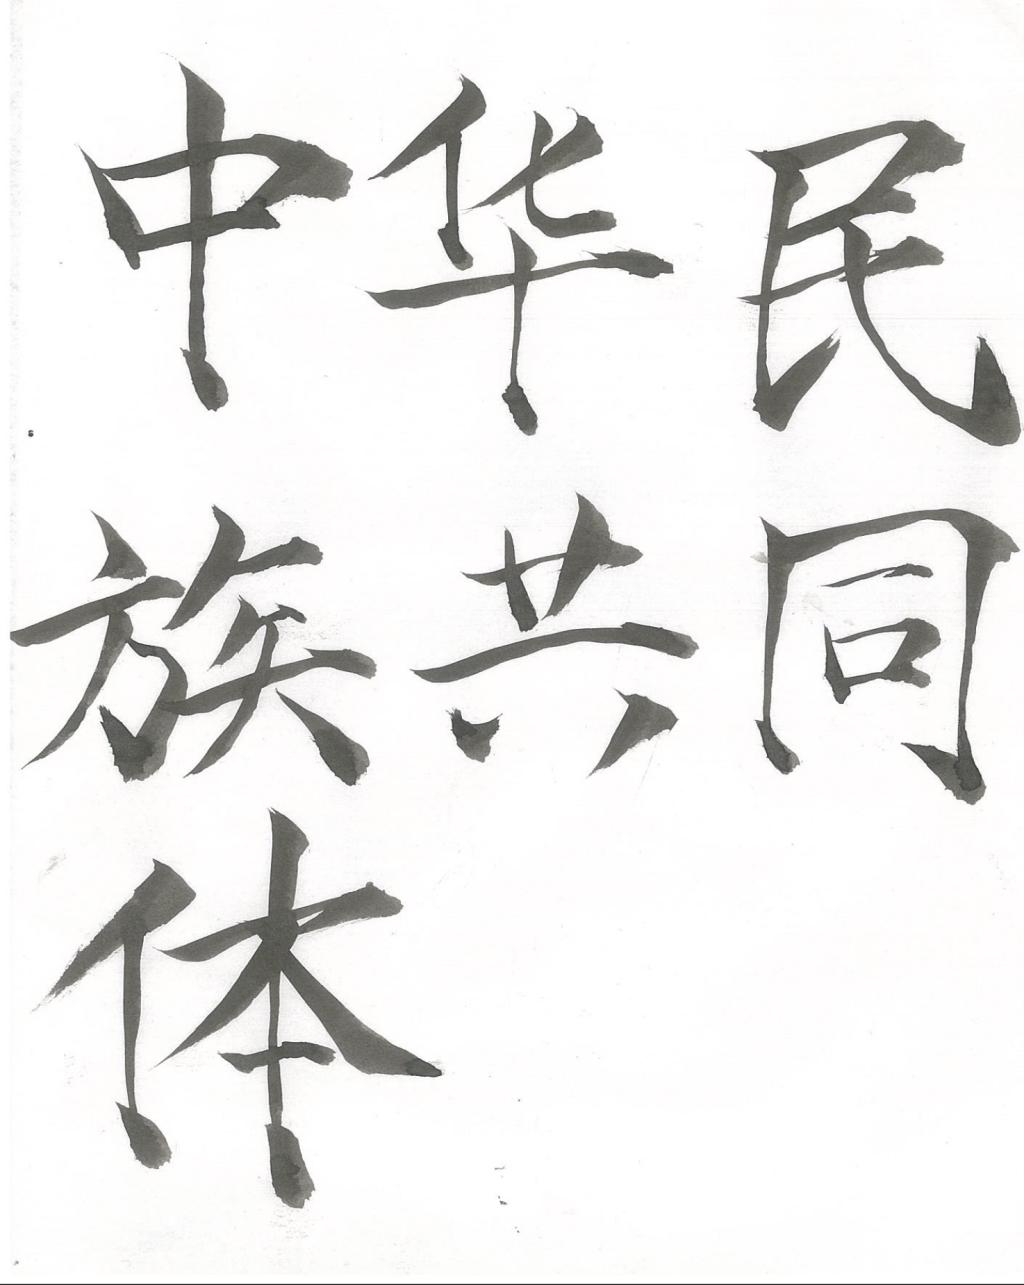 中华民
族共同
体